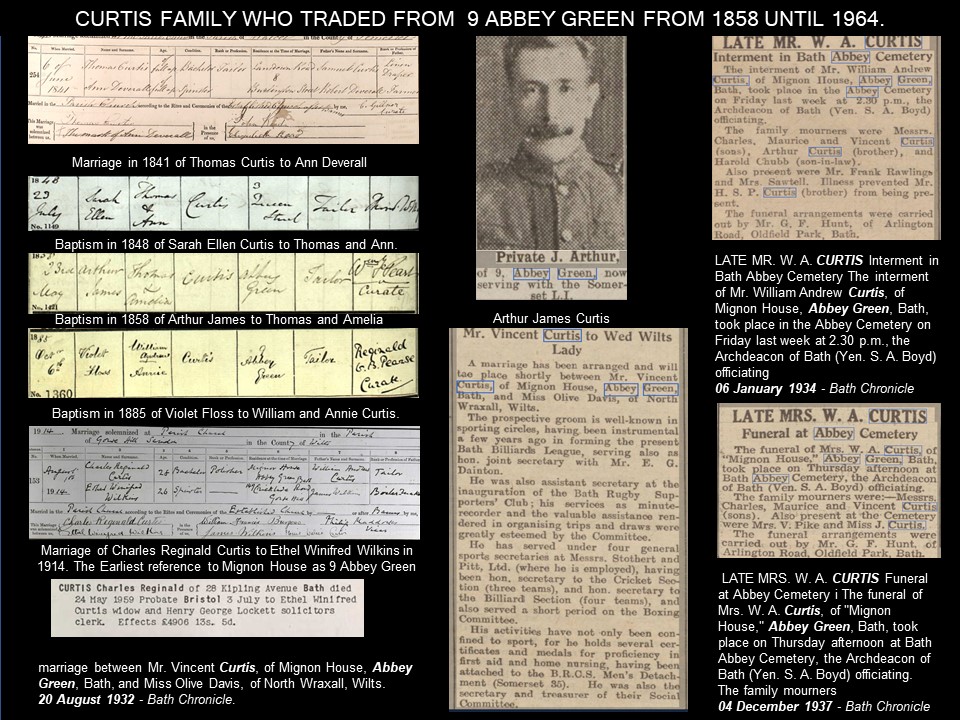 CURTIS FAMILY WHO TRADED FROM 9 ABBEY GREEN FROM 1858 UNTIL 1964.
No.
When Married.
Name and Surname.
Age.
Condition.
Rank or Profession.
Residence at the Time of Marriage.
Father's Name and Surname.
254
6 of
June
1841
Thomas Curtis
full age
Bachelor
Tailor
Ann Deverall
full age
Spinster
Married in the
according to the Rites and Ceremonies of the
This Marriage
was
solemnized
between us,
in the
Presence
of us,
Marriage in 1841 of Thomas Curtis to Ann Deverall
1848
23
July
No. 1149
Sarah
Ellen
Thomas
&
Ann
Curtis
3
Queen
Street
Tailor
Baptism in 1848 of Sarah Ellen Curtis to Thomas and Ann.
23rd
May
No. 1421
Arthur
James
Thomas
Curtis
Abbey
Green
Tailor
Curate
Baptism in 1858 of Arthur James to Thomas and Amelia
1885
Octr
6th
No. 1360
Violet
Floss
William
Andrew
Annie
Curtis
Abbey
Green
Tailor
Reginald
G. B. Pearse
Curate
Baptism in 1885 of Violet Floss to William and Annie Curtis.
1914. Marriage solemnized at Parish Church in the Parish
of in the County of Wilts
153
1914.
Charles Reginald
Curtis
26
Bachelor
Mignon House
Abbey Green
Bath
William Andrew
Curtis
Tailor
Ethel Winifred
Wilkins
26
Spinster
Married in the Parish Church according to the Rites and Ceremonies of the Established Church
Charles Reginald Curtis
Ethel Winifred Wilkins
Marriage of Charles Reginald Curtis to Ethel Winifred Wilkins in
1914. The Earliest reference to Mignon House as 9 Abbey Green
CURTIS Charles Reginald of 28 Kipling Avenue Bath died
24 May 1959 Probate Bristol 3 July to Ethel Winifred
Curtis widow and Henry George Lockett solicitors
clerk. Effects £4906 13s. 5d.
marriage between Mr. Vincent Curtis, of Mignon House, Abbey
Green, Bath, and Miss Olive Davis, of North Wraxall, Wilts.
20 August 1932 - Bath Chronicle.
Private J. Arthur,
of 9, Abbey Green, now
serving with the Somer-
set L.I.
Arthur James Curtis
Mr. Vincent Curtis to Wed Wilts
Lady
A marriage has been arranged and will
tae place shortly between Mr. Vincent
Curtis, of Mignon House, Abbey Green,
Bath, and Miss Olive Davis, of North
Wraxall, Wilts.
The prospective groom is well-known in
sporting circles, having been instrumental
a few years ago in forming the present
Bath Billiards League, serving also as
hon. joint secretary with Mr. E. G.
Dainton.
He was also assistant secretary at the
inauguration of the Bath Rugby Sup-
porters' Club; his services as minute-
recorder and the valuable assistance ren-
dered in organising trips and draws were
greatly esteemed by the Committee.
He has served under four general
sports secretaries at Messrs. Stothert and
Pitt, Ltd. (where he is employed), having
been hon. secretary to the Cricket Sec-
tion (three teams), and hon. secretary to
the Billiard Section (four teams), and
also served a short period on the Boxing
Committee.
His activities have not only been con-
fined to sport, for he holds several cer-
tificates and medals for proficiency in
first aid and home nursing, having been
attached to the B.R.C.S. Men's Detach-
ment (Somerset 35). He was also the
secretary and treasurer of their Social
Committee.
LATE MR. W. A. CURTIS
Interment in Bath Abbey Cemetery
The interment of Mr. William Andrew
Curtis, of Mignon House, Abbey Green,
Bath, took place in the Abbey Cemetery
on Friday last week at 2.30 p.m., the
Archdeacon of Bath (Ven. S. A. Boyd)
officiating.
The family mourners were Messrs.
Charles, Maurice and Vincent Curtis
(sons), Arthur Curtis (brother), and
Harold Chubb (son-in-law).
Also present were Mr. Frank Rawlings
and Mrs. Sawtell. Illness prevented Mr.
H. S. P. Curtis (brother) from being pre-
sent.
The funeral arrangements were carried
out by Mr. G. F. Hunt, of Arlington
Road, Oldfield Park, Bath.
LATE MR. W. A. CURTIS Interment in
Bath Abbey Cemetery The interment
of Mr. William Andrew Curtis, of
Mignon House, Abbey Green, Bath,
took place in the Abbey Cemetery on
Friday last week at 2.30 p.m., the
Archdeacon of Bath (Yen. S. A. Boyd)
officiating
06 January 1934 - Bath Chronicle
LATE MRS. W. A. CURTIS
Funeral at Abbey Cemetery
The funeral of Mrs. W. A. Curtis, of
"Mignon House," Abbey Green, Bath,
took place on Thursday afternoon at
Bath Abbey Cemetery, the Archdeacon
of Bath (Ven. S. A. Boyd) officiating.
The family mourners were:—Messrs.
Charles, Maurice and Vincent Curtis
(sons). Also present at the Cemetery
were Mrs. V. Pike and Miss J. Curtis.
The funeral arrangements were
carried out by Mr. G. F. Hunt, of
Arlington Road, Oldfield Park, Bath.
LATE MRS. W. A. CURTIS Funeral
at Abbey Cemetery i The funeral of
Mrs. W. A. Curtis, of "Mignon
House," Abbey Green, Bath, took
place on Thursday afternoon at Bath
Abbey Cemetery, the Archdeacon of
Bath (Yen. S. A. Boyd) officiating.
The family mourners
04 December 1937 - Bath Chronicle